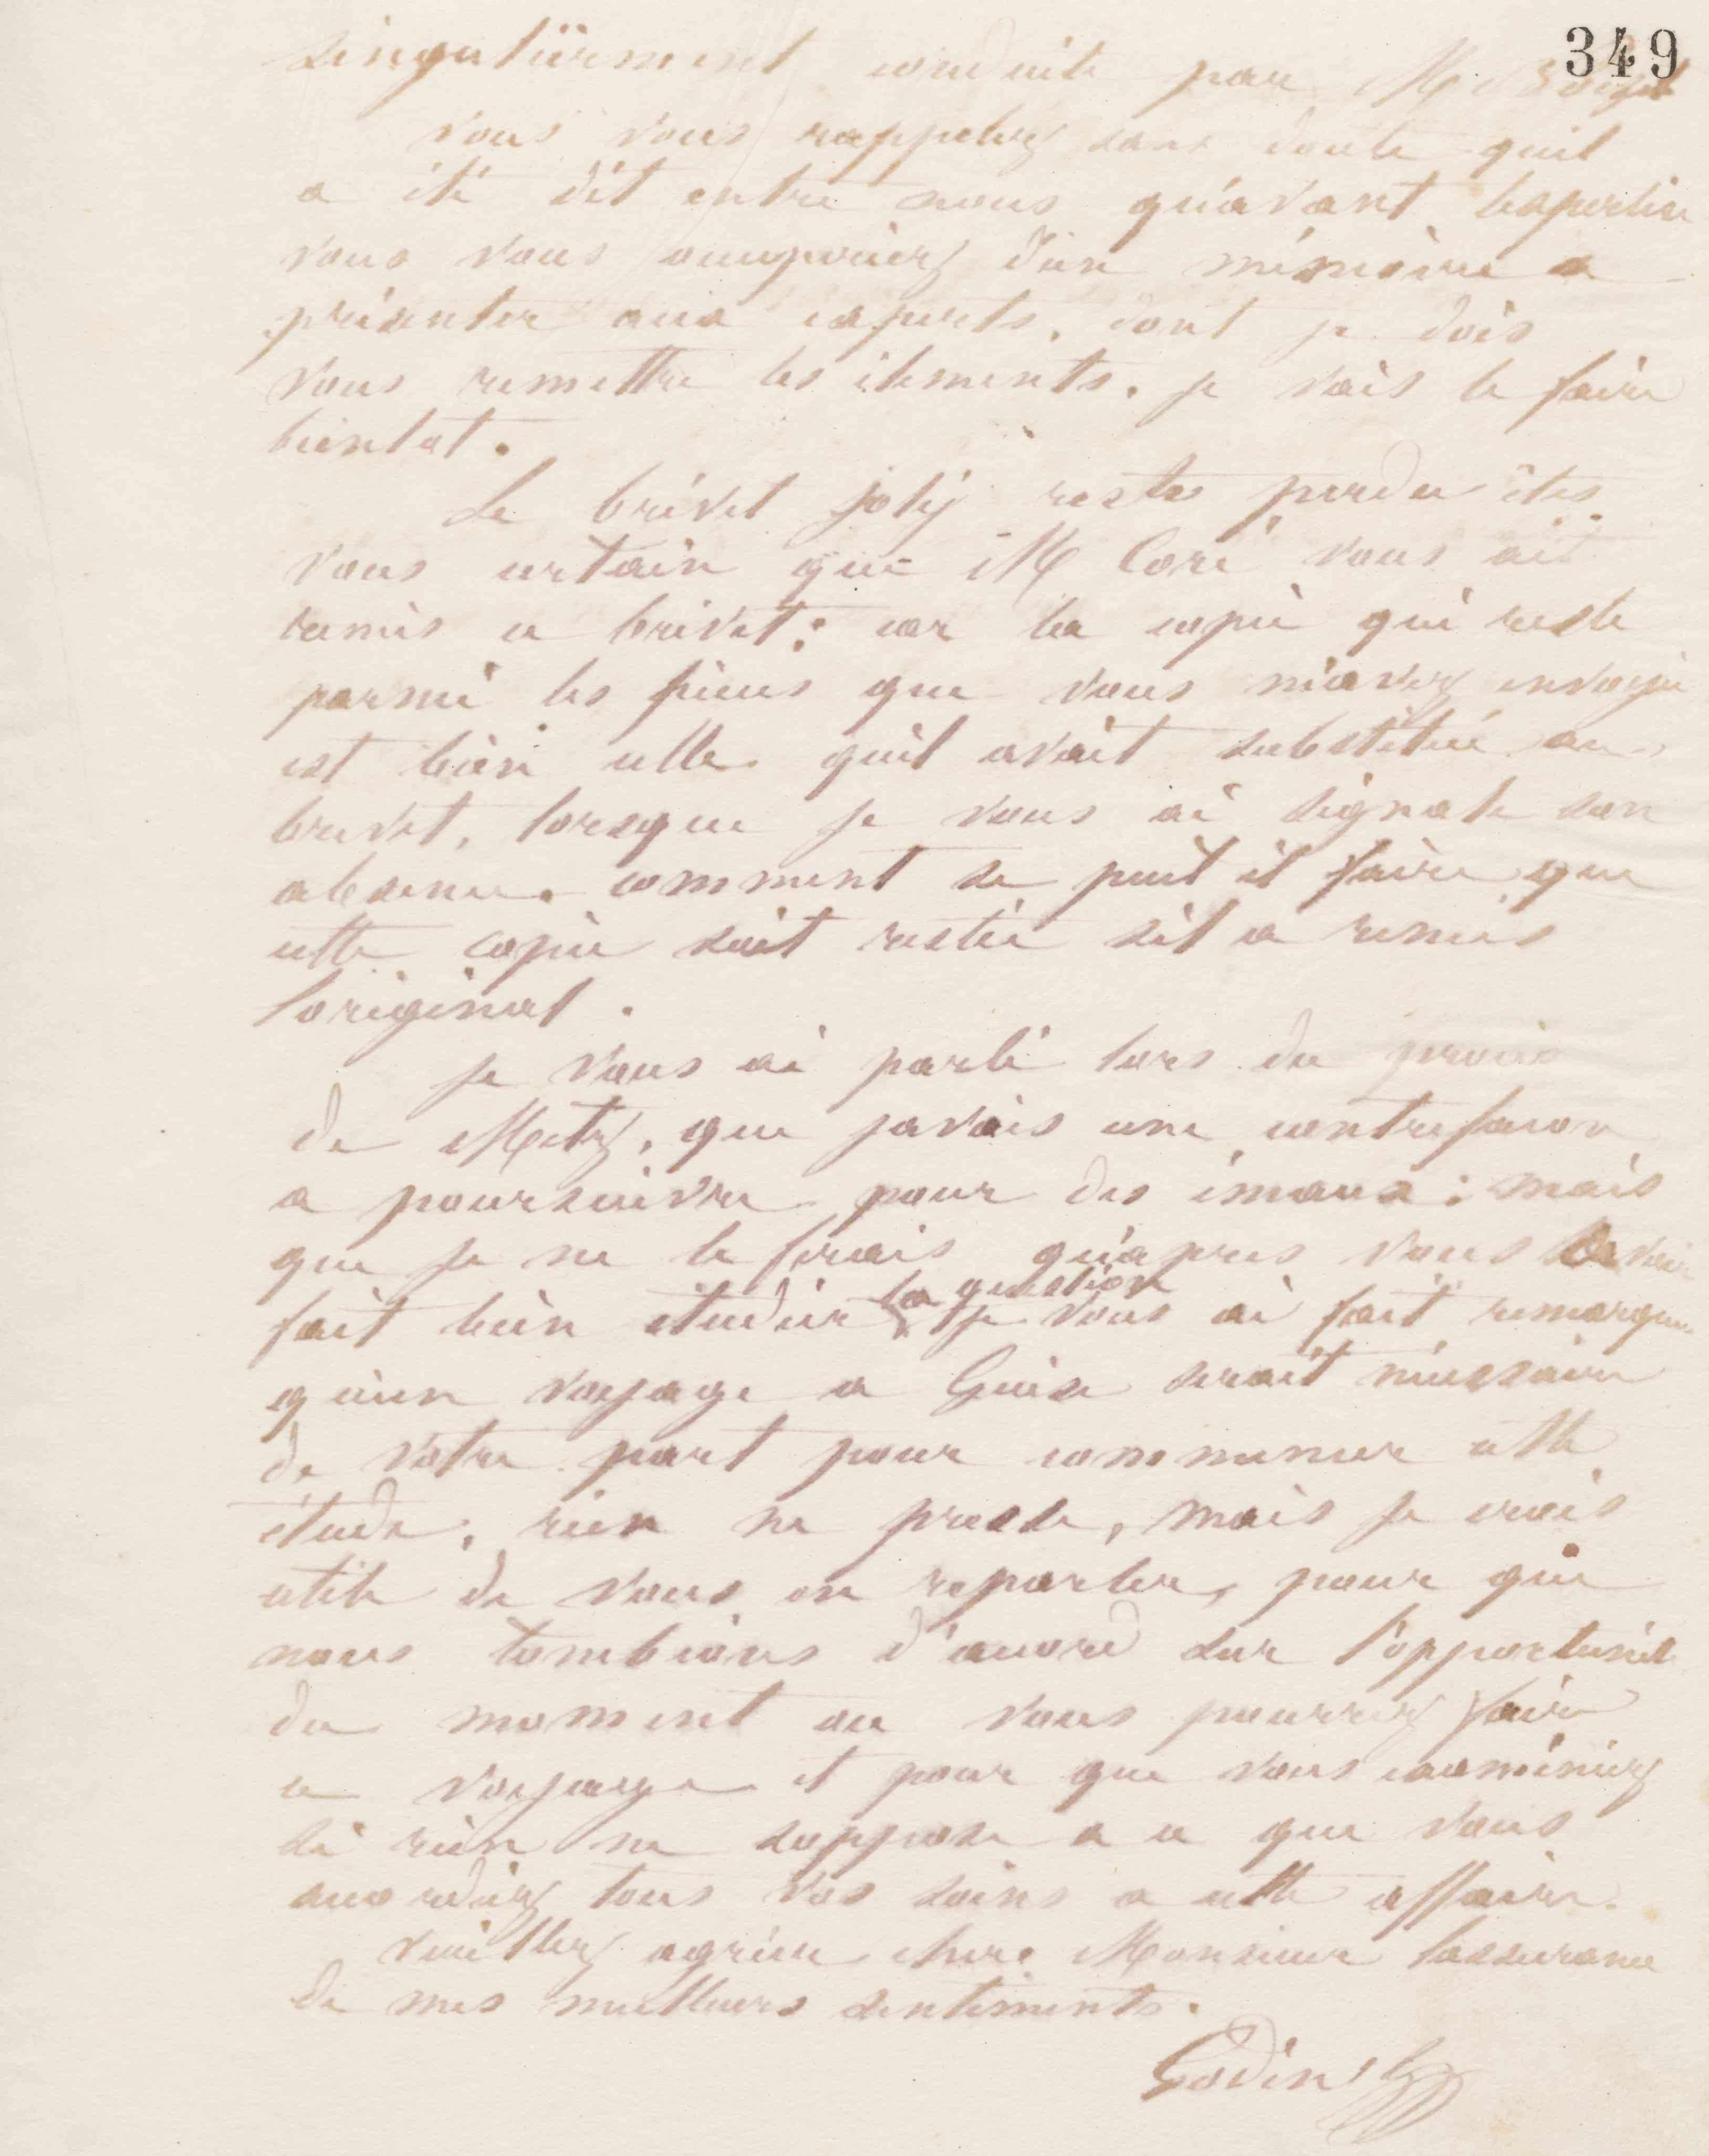 349
singulièrment conduite par M
vous vous rappelez sans doute quil
a été dit entre nous qu'avant lexpertise
vous vous occuperiez d'un mémoire a
présenter aux experts, dont je dois
vous remettre les éléments. je vais le faire
bientot.
Le brevet joly reste perdu êtes
vous certain que M Coré vous ait
remis ce brevet; car la copie qui reste
parmi les pièces que vous m'avez envoyé
est bien celle quil avait substitué au
brevet, lorsque je vous ai signalé son
absence. comment se peut il faire que
cette copie soit restée sil a remis
loriginal.
Je vous ai parlé lors du procès
de Metz, que javais une contrefacon
a poursuivre pour des émaux; mais
que je ne le ferais qu'apres vous avoir
fait bien étudier la question je vous ai fait remarquer
qu'un voyage a Guise serait nécessaire
de votre part pour commencer cette
étude, rien ne presse, mais je crois
utile de vous en reparler, pour que
nous tombions d'accord sur l'opportunité
du moment ou vous pourrez faire
ce voyage et pour que vous examiniez
si rien ne soppose a ce que vous
accordiez tous vos soins a cette affaire.
Veuillez agréer cher Monsieur lassurance
de mes meilleurs sentiments.
Godin